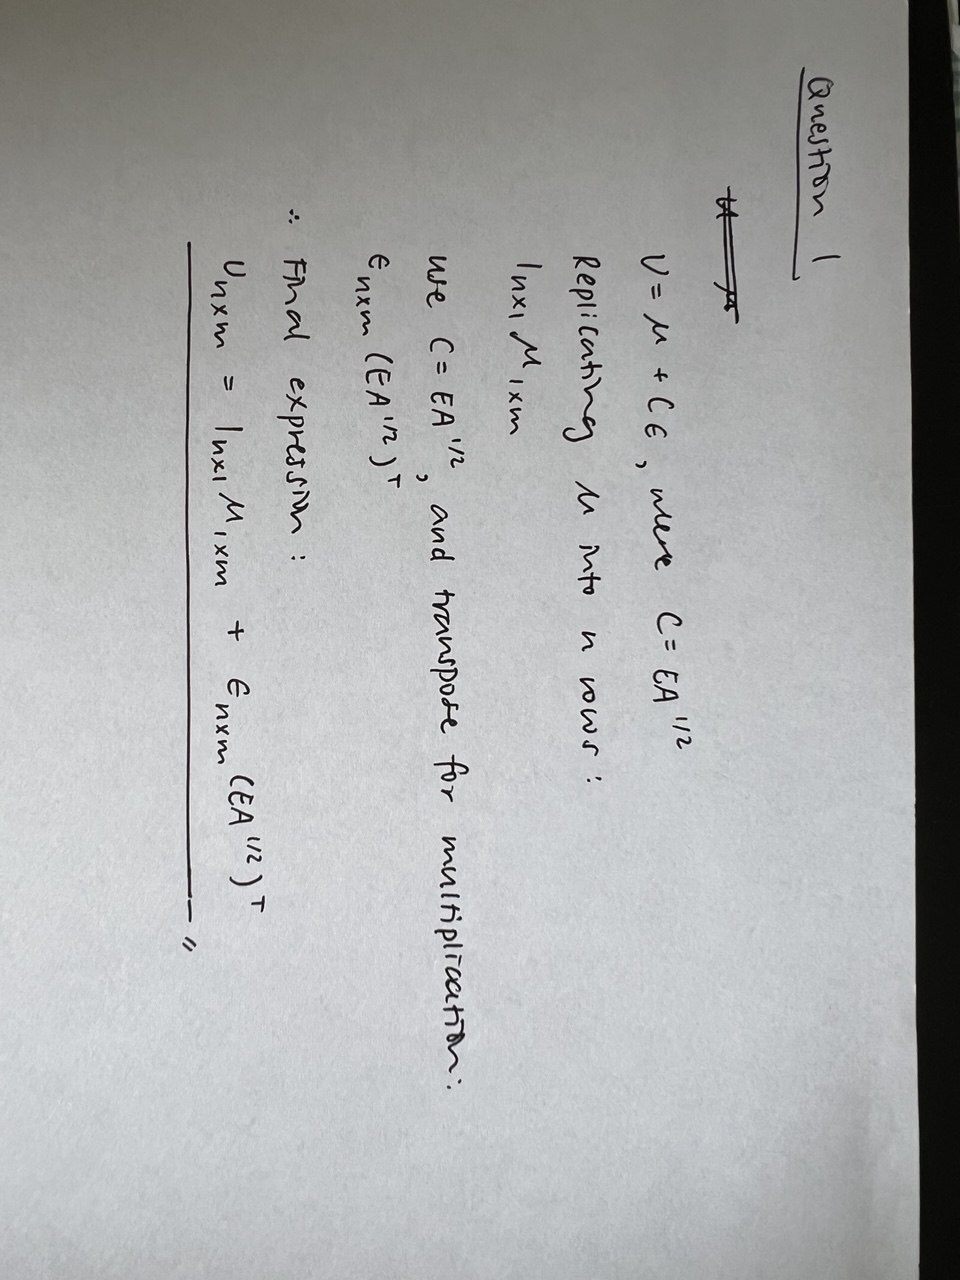 Question 1
U = μ + Cϵ, where C = EΛ^1/2
Replicating μ into n rows :
1nx1 μ1xm
use C = EΛ^1/2, and transpose for multiplication:
ϵnxm (EΛ^1/2)^T
∴ Final expression :
Unxm = 1nx1 μ1xm + ϵnxm (EΛ^1/2)^T